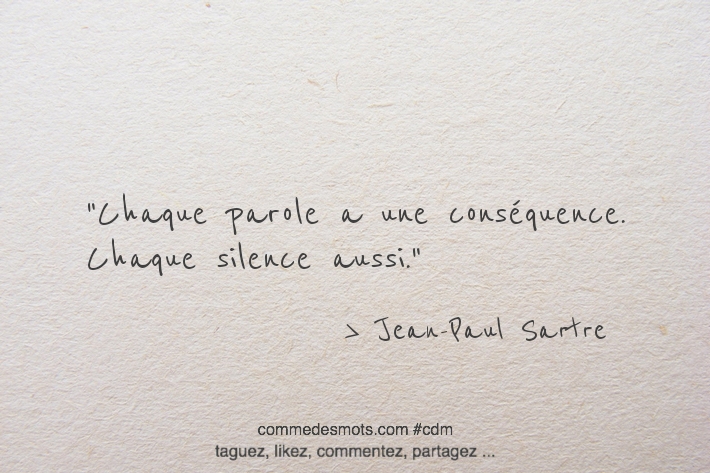 "Chaque parole a une conséquence.
Chaque silence aussi."
> Jean-Paul Sartre
commedesmots.com #cdm
taguez, likez, commentez, partagez ...